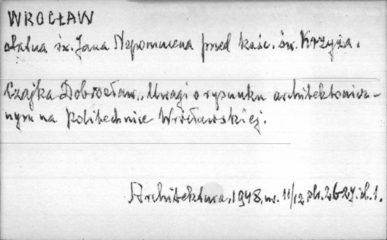 WROCŁAW
statua św. Jana Nepomucena przed kośc. św. Krzyża.
Czajka Dobrosław., Uwagi o rysunku architektonicz-
nym na Politechnice Wrocławskiej.
Architektura, 1948, nr. 11/12, str. 26-27. il. 1.